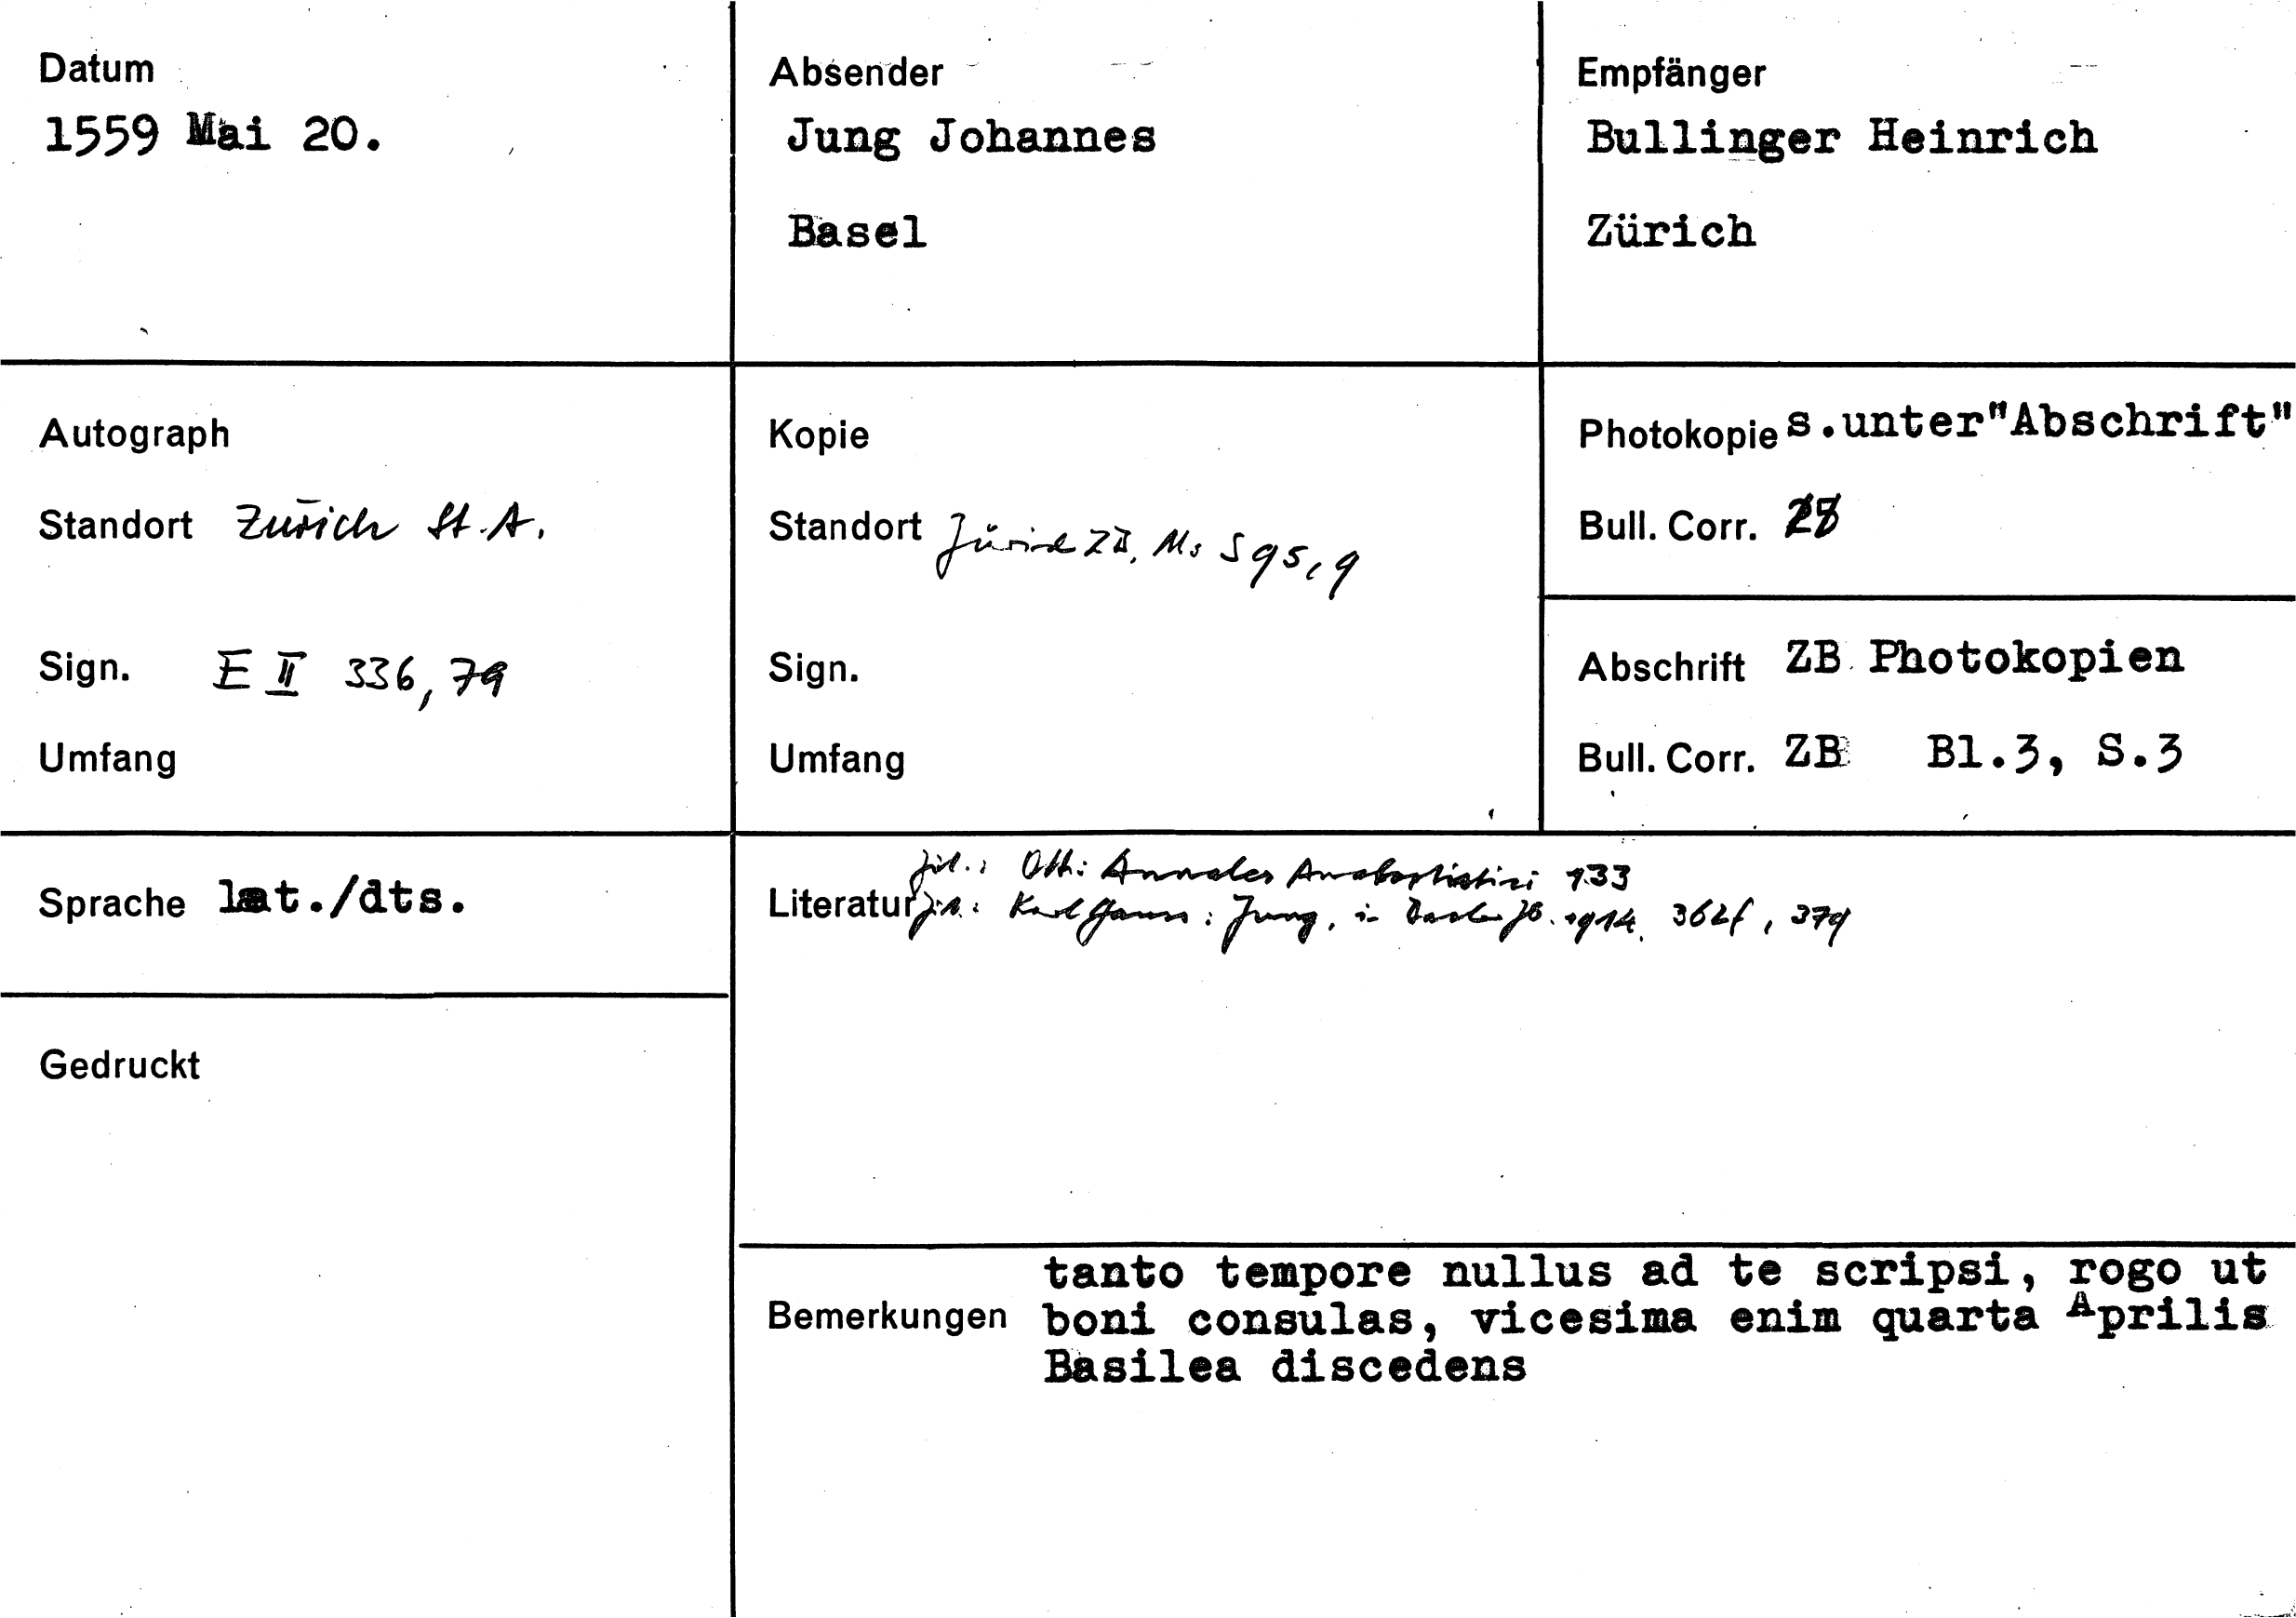 Datum
1559 Mai 20.
Absender
Jung Johannes
Basel
Empfänger
Bullinger Heinrich
Zürich
Autograph
Standort Zürich St.A.
Sign. E II 336,79
Umfang
Kopie
Standort Zürich ZB, Ms S 95, 9
Sign.
Umfang
Photokopie s.unter"Abschrift"
Bull. Corr.
Abschrift ZB Photokopien
Bull. Corr. ZB Bl.3, S.3
Sprache lat./dts.
Gedruckt
zit.: Ott: Annales Anabaptistici 133
Literatur zit.: Karl Gauss: Jung, in Basler Jb. 1914. 362f, 379
tanto tempore nullus ad te scripsi, rogo ut
Bemerkungen boni consulas, vicesima enim quarta Aprilis
Basilea discedens